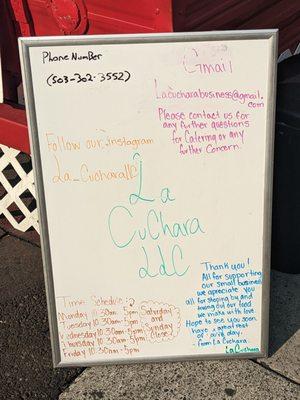 Phone Number
(503-302-3552)
Gmail
Lacucharabusiness@gmail.
com
Please contact us for
any further questions
for Catering or any
further Concern.
Follow our instagram
La_Cucharallc
La
CuChara
LdC
Time Schedule:
Monday 10:30am-5pm
Tuesday 10:30am-5pm
Wednesday 10:30am-5pm
Thursday 10:30am-5pm
Friday 10:30am-5pm
Saturday
and
Sunday
Close
Thank you!
All for supporting
our small business
we appreciate you
all for stoping by and
trying out our food
we make with love.
Hope to see you soon
have a great rest
of day.
- from La Cuchara.
La Cuchara